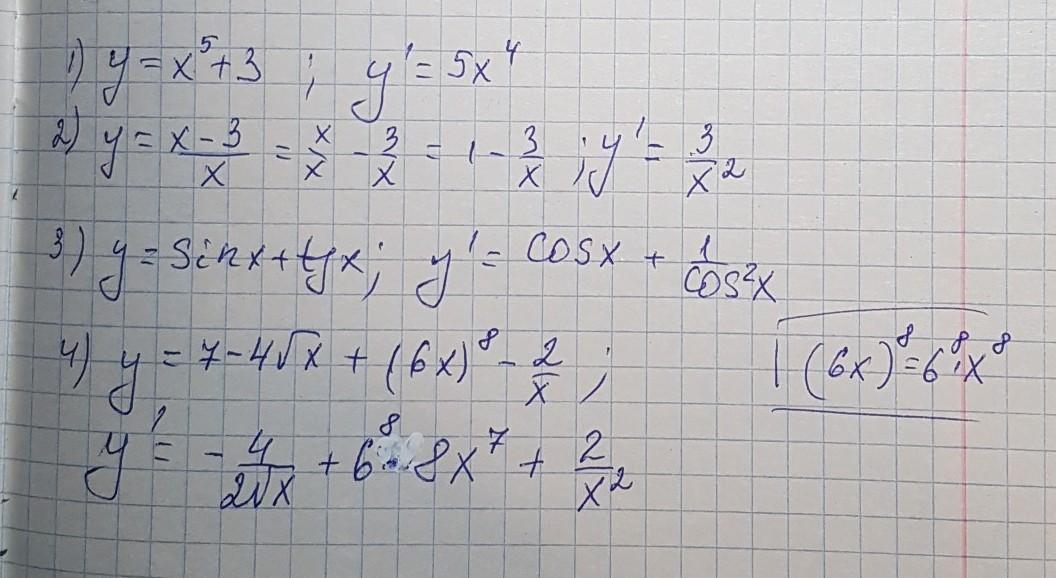 1) y = x⁵ + 3 ; y' = 5x⁴
2) y = (x - 3)/x = x/x - 3/x = 1 - 3/x ; y' = 3/x²
3) y = sin x + tg x ; y' = cos x + 1/cos²x
4) y = 7 - 4√x + (6x)⁸ - 2/x ;
(6x)⁸ = 6⁸·x⁸
y' = - 4/(2√x) + 6⁸·8x⁷ + 2/x²